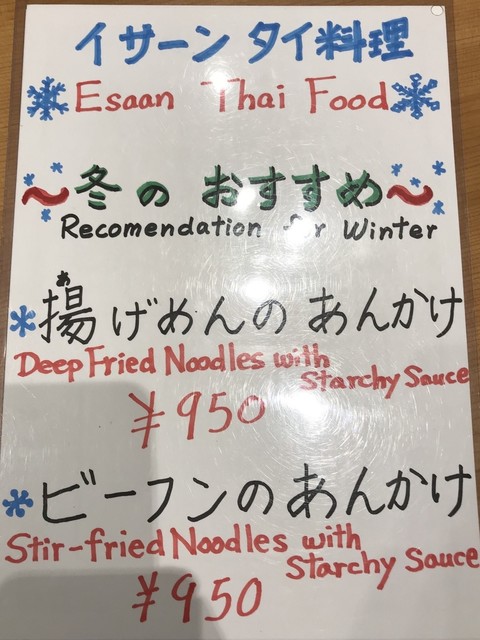 イサーン タイ料理
Esaan Thai Food
〜冬の おすすめ〜
Recomendation for Winter
あ
*揚げめんの あんかけ
Deep Fried Noodles with
Starchy Sauce
¥950
*ビーフンのあんかけ
Stir-fried Noodles with
Starchy Sauce
¥950